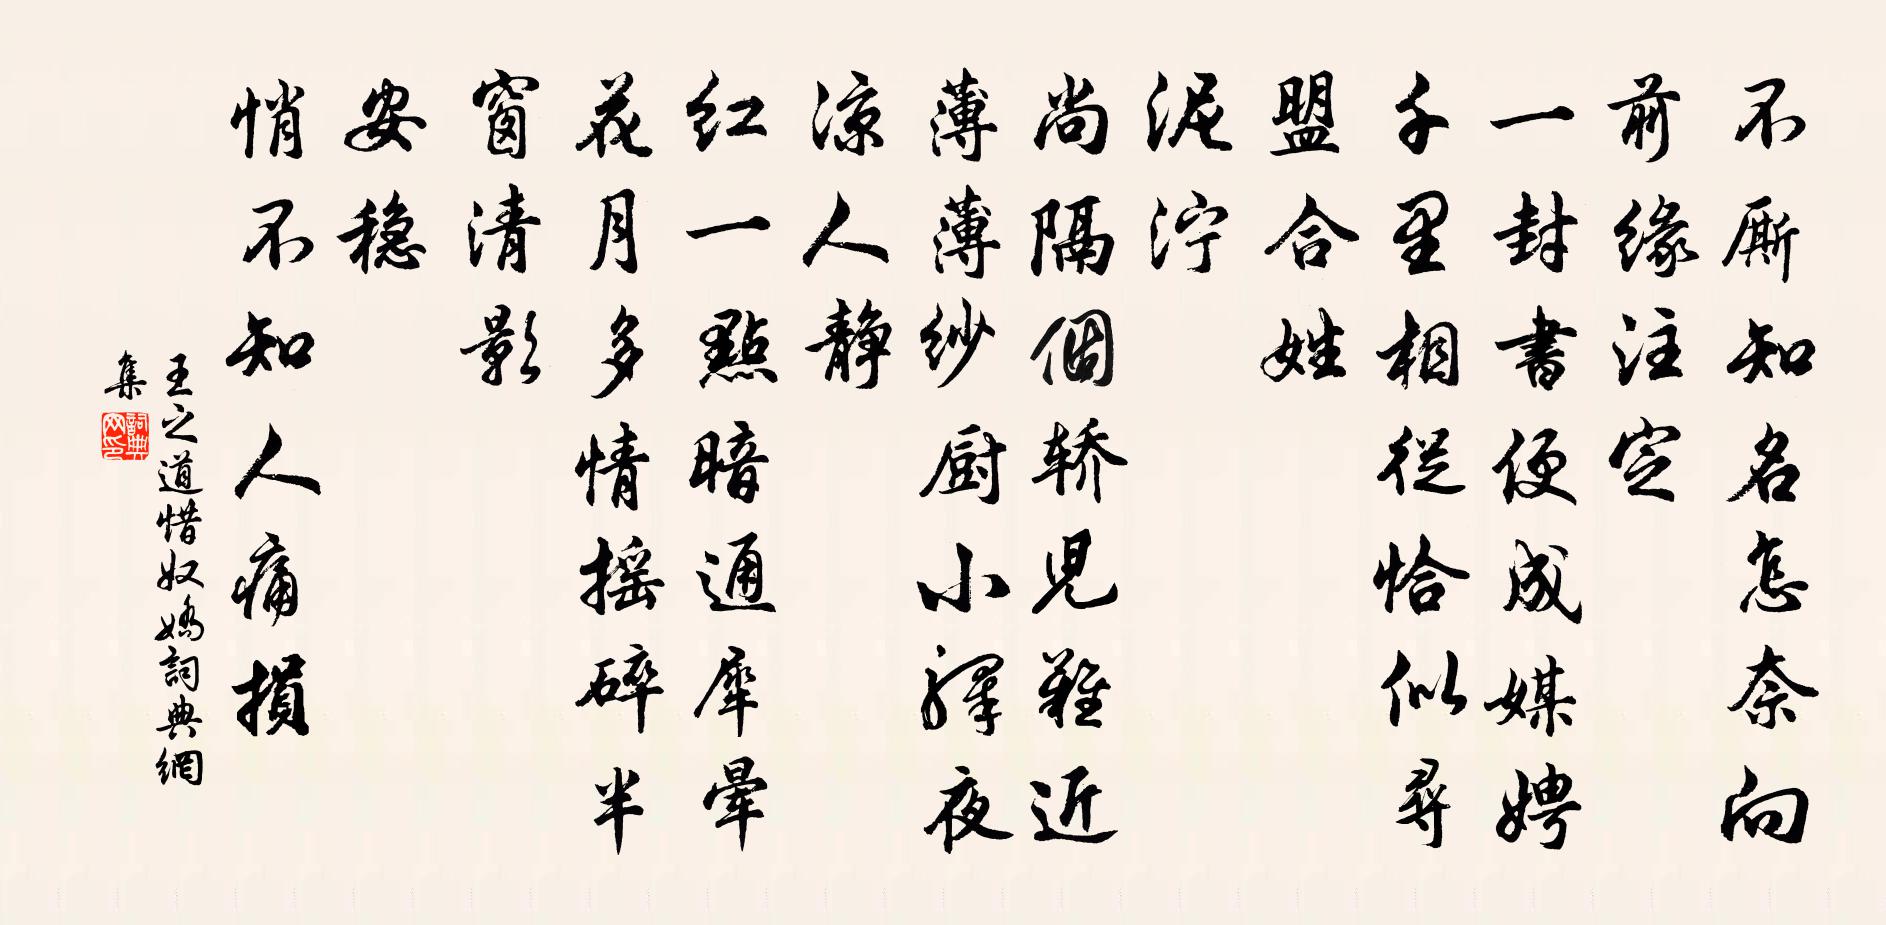 不厮知名怎奈向
前缘注定
一封書便成媒娉
千里相從恰似尋
盟合姓
泥泞
尚隔個轿兒難近
薄薄纱厨小驛夜
涼人静
红一點暗通犀暈
花月多情摇碎半
窗清影
安稳
悄不知人痛損
王之道惜奴嬌詞典網
集
詞典
网印